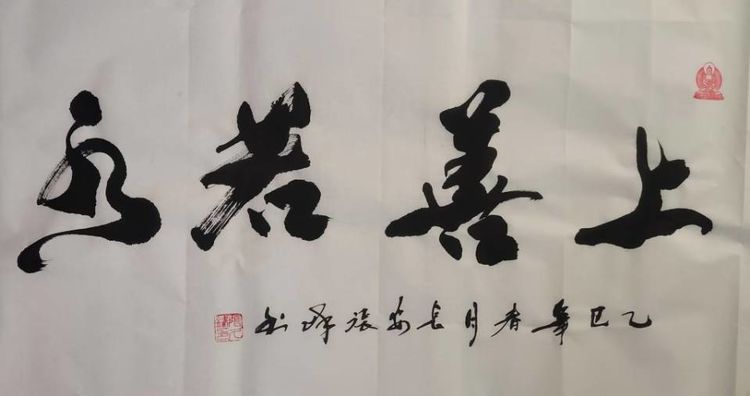 上善若水
乙巳年春月长安張峰书